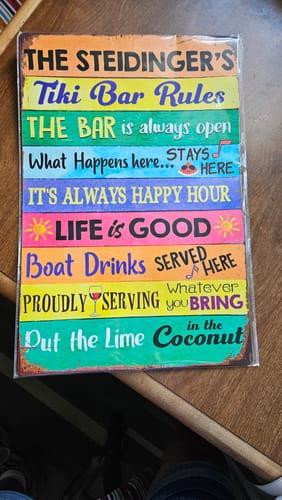 THE STEIDINGER'S
Tiki Bar Rules
THE BAR is always open
What Happens here... STAYS HERE
IT'S ALWAYS HAPPY HOUR
LIFE is GOOD
Boat Drinks SERVED HERE
PROUDLY SERVING Whatever you BRING
Put the Lime in the Coconut